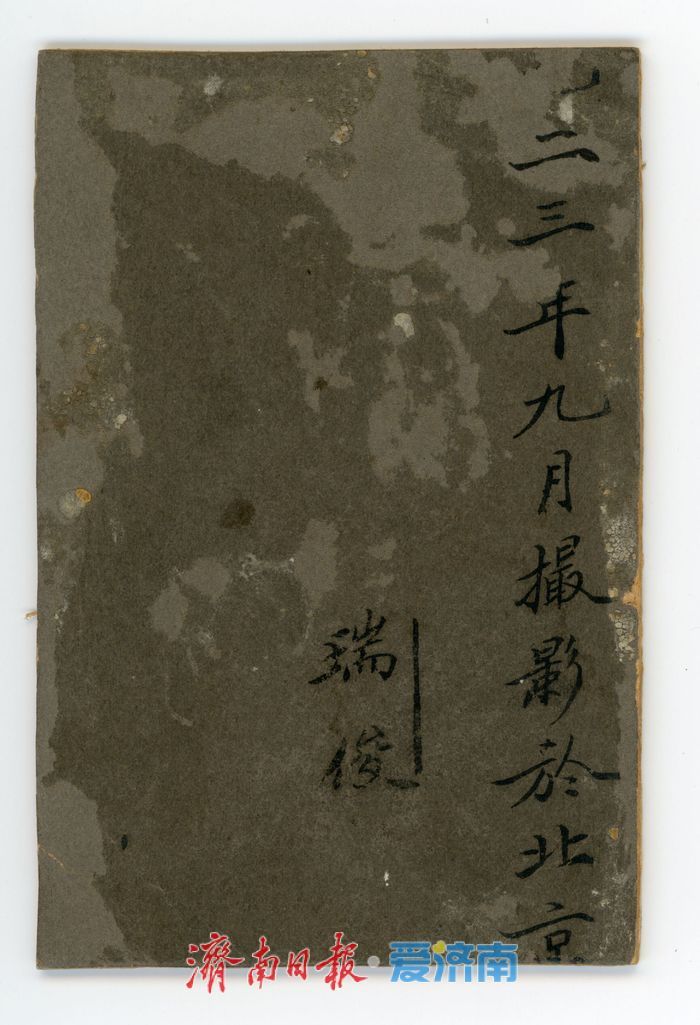 二三年九月撮影於北京
瑞俊
濟南日報·爱济南